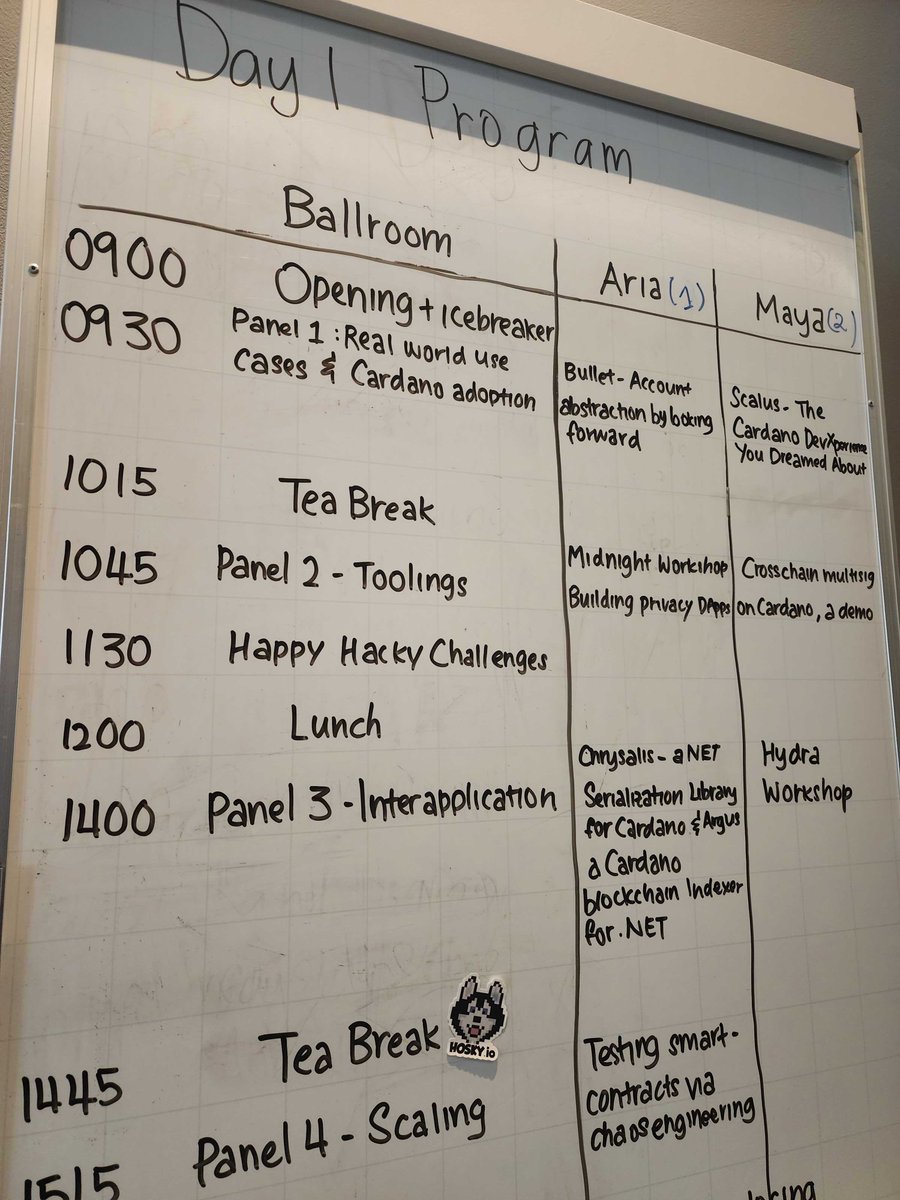 Day 1 Program
Ballroom
Aria (1)
Maya (2)
0900 Opening + icebreaker
0930 Panel 1 : Real world use
cases & Cardano adoption
Bullet - Account
abstraction by looking
forward
Scalus - The
Cardano DevXperience
You Dreamed About
1015 Tea Break
1045 Panel 2 - Toolings
Midnight Workshop
Building privacy DApps
Crosschain multisig
on Cardano, a demo
1130 Happy Hacky Challenges
1200 Lunch
1400 Panel 3 - Interapplication
Chrysalis - a NET
Serialization Library
for Cardano & Argus
a Cardano
blockchain Indexer
for .NET
Hydra
Workshop
1445 Tea Break
HOSKY.io
1515 Panel 4 - Scaling
Testing smart-
contracts via
chaos engineering